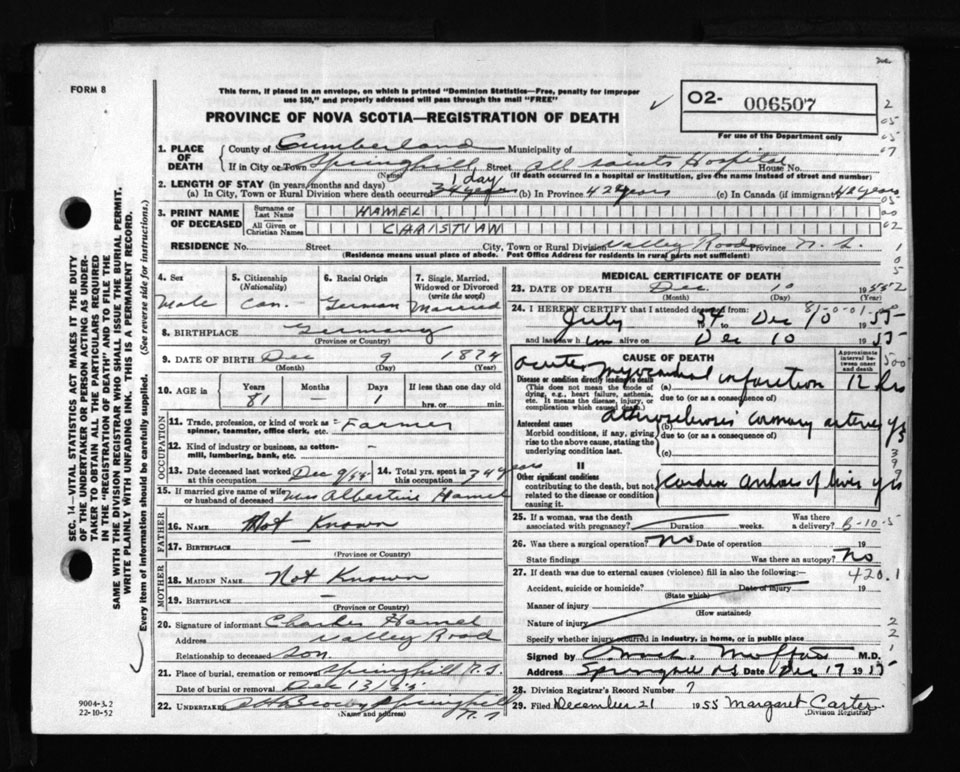 FORM 8
This form, if placed in an envelope, on which is printed "Dominion Statistics—Free, penalty for improper
use $50," and properly addressed will pass through the mail "FREE"
PROVINCE OF NOVA SCOTIA—REGISTRATION OF DEATH
02- 006507
For use of the Department only
1. PLACE OF DEATH County of Cumberland Municipality of
If in City or Town Springhill Street All Saints Hospital House No.
(Name) (If death occurred in a hospital or institution, give the name instead of street and number)
2. LENGTH OF STAY (in years, months and days) 1 day
(a) In City, Town or Rural Division where death occurred 34 years (b) In Province 42 years (c) In Canada (if immigrant) 42 years
3. PRINT NAME OF DECEASED Surname or Last Name HAMEL
All Given or Christian Names CHRISTIAN
RESIDENCE No. Street City, Town or Rural Division Valley Road Province N.S.
(Residence means usual place of abode. Post Office Address for residents in rural parts not sufficient)
4. Sex Male
5. Citizenship (Nationality) Can.
6. Racial Origin German
7. Single, Married, Widowed or Divorced (write the word) Married
8. BIRTHPLACE Germany
(Province or Country)
9. DATE OF BIRTH Dec 9 1874
(Month) (Day) (Year)
10. AGE in Years 81 Months — Days 1 If less than one day old hrs. or min.
OCCUPATION
11. Trade, profession, or kind of work as spinner, teamster, office clerk, etc. Farmer
12. Kind of industry or business, as cotton-mill, lumbering, bank, etc. -
13. Date deceased last worked at this occupation Dec 9/55
14. Total yrs. spent in this occupation 74 years
15. If married give name of wife or husband of deceased Mrs Albertine Hamel
FATHER
16. NAME Not Known
17. BIRTHPLACE —
(Province or Country)
MOTHER
18. MAIDEN NAME Not Known
19. BIRTHPLACE —
(Province or Country)
20. Signature of informant Charles Hamel
Address Valley Road
Relationship to deceased Son
21. Place of burial, cremation or removal Springhill N.S.
Date of burial or removal Dec 13/55
22. UNDERTAKER Brown Springhill N.S
(Name and address)
MEDICAL CERTIFICATE OF DEATH
23. DATE OF DEATH Dec 10 1955
(Month) (Day) (Year)
24. I HEREBY CERTIFY that I attended deceased from:
July to Dec 10 1955
and last saw him alive on Dec 10 1955
CAUSE OF DEATH
Approximate interval between onset and death
I
Disease or condition directly leading to death
(This does not mean the mode of dying, e.g., heart failure, asthenia, etc. It means the disease, injury, or complication which caused death.)
(a) acute myocardial infarction 12 hrs
due to (or as a consequence of)
Antecedent causes
Morbid conditions, if any, giving rise to the above cause, stating the underlying condition last.
(b) coronary arteries yrs
due to (or as a consequence of)
(c)
II
Other significant conditions
contributing to the death, but not related to the disease or condition causing it.
of liver yrs
25. If a woman, was the death associated with pregnancy? Duration weeks. Was there a delivery? B-10-5
26. Was there a surgical operation? No Date of operation 19
State findings Was there an autopsy? No
27. If death was due to external causes (violence) fill in also the following:— 420.1
Accident, suicide or homicide? Date of injury 19
(State which)
Manner of injury
(How sustained)
Nature of injury
Specify whether injury occurred in industry, in home, or in public place
Signed by M.D.
Address Springhill NS Date Dec 17 1955
28. Division Registrar's Record Number 7
29. Filed December 21 1955 Margaret Carter
(Division Registrar)
SEC. 14—VITAL STATISTICS ACT MAKES IT THE DUTY
OF THE UNDERTAKER OR PERSON ACTING AS UNDER-
TAKER TO OBTAIN ALL THE PARTICULARS REQUIRED
IN THE "REGISTRATION OF DEATH" AND TO FILE THE
SAME WITH THE DIVISION REGISTRAR WHO SHALL ISSUE THE BURIAL PERMIT.
WRITE PLAINLY WITH UNFADING INK. THIS IS A PERMANENT RECORD.
Every item of information should be carefully supplied. (See reverse side for instructions.)
9004-3.2
22-10-52